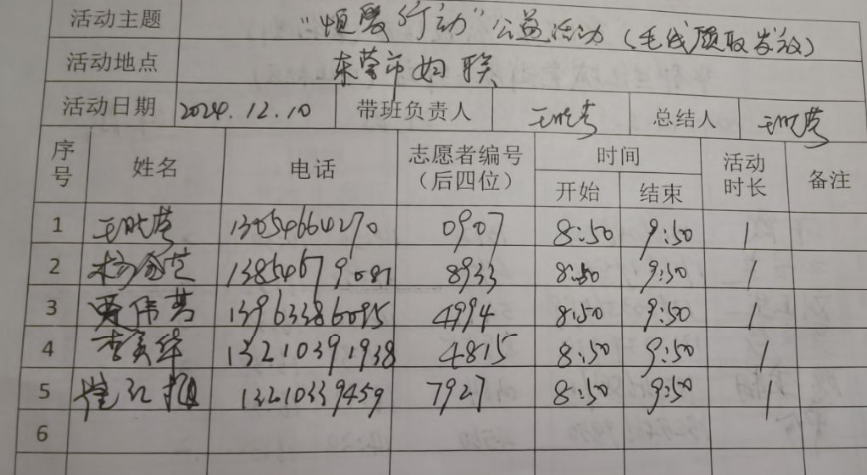 活动主题 “恒爱行动”公益活动（毛线领取发放）
活动地点 东营市妇联
活动日期 2024.12.10 带班负责人 王晓芳 总结人 王晓芳
序号 姓名 电话 志愿者编号（后四位） 时间 开始 结束 活动时长 备注
1 13054664270 0907 8:50 9:50 1
2 13854679081 8933 8:50 9:50 1
3 贾伟芳 13963386095 4994 8:50 9:50 1
4 李美华 13210391938 4815 8:50 9:50 1
5 13210339459 7927 8:50 9:50 1
6